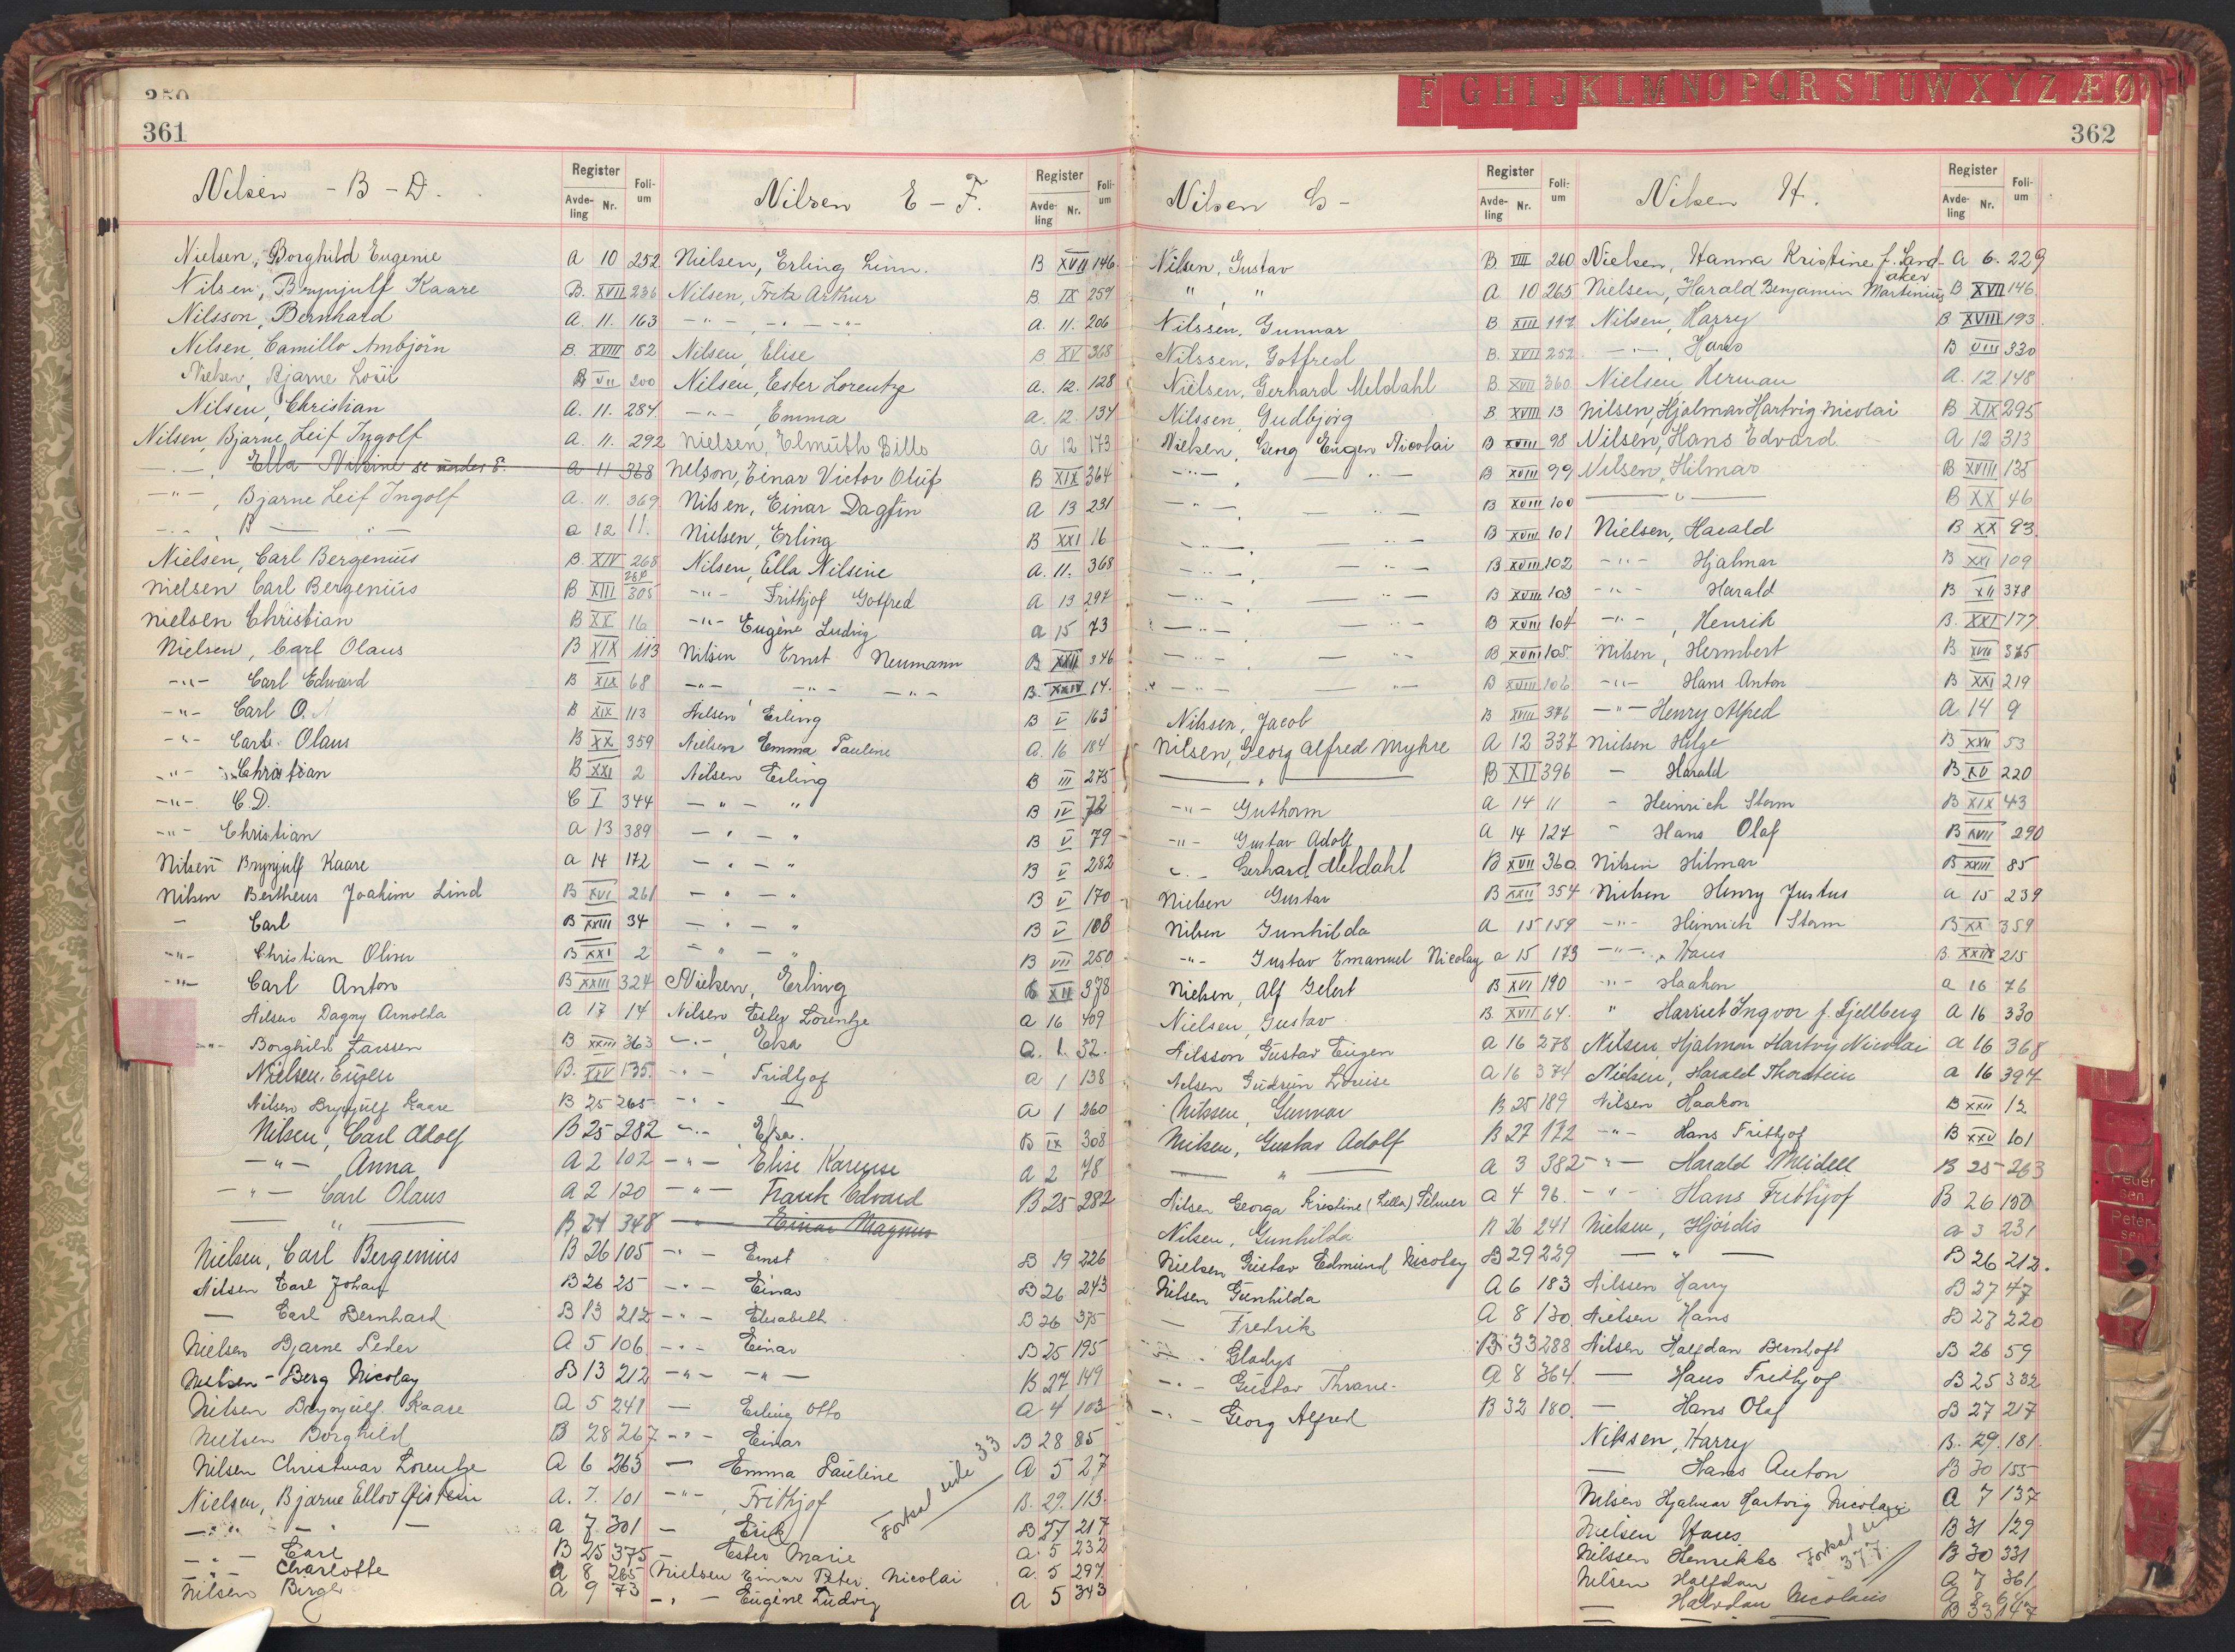 361
Nilsen - B - D.
Register
Avde-ling Nr.
Foli-um
Nielsen, Borghild Eugenie A 10 252
Nilsen, Brynjulf Kaare B. XVII 236
Nilsson, Bernhard A. 11. 163
Nilsen, Camillo Ambjörn B. XVIII 52
Nielsen, Bjarne Louis B VII 200
Nilsen, Christian A. 11. 284.
Nilsen, Bjarne Leif Ingolf A. 11. 292
-"- Ella Nilsine se under E. A 11 368
-"-, Bjarne Leif Ingolf A. 11. 369.
-"- B — " — a 12 11.
Nielsen, Carl Bergenius B. XIV 268
Nielsen Carl Bergenius B XIII 305
Nielsen Christian B XX 16
Nielsen, Carl Olaus B XIX 113
-"- Carl Edward B XIX 68
-"- Carl O. B XIX 113
-"- Carl Olaus B XX 359
-"- Christian B XXI 2
-"- C.D. C I 344
-"- Christian A 13 389
Nilsen Brynjulf Kaare a 14 172
Nilsen Bertheus Joakim Lind B XVI 261
- Carl B XVIII 34
-"- Christian Oliver B XXI 2
-"- Carl Anton B XXIII 324
Nilsen Dagny Arnolda A 17 14
-"- Borghild Larssen B XXIII 363
Nielsen, Eugen B. XXV 135.
Nilsen Brynjulf Kaare B 25 265
Nilsen, Carl Adolf B 25 282
-"- Anna A 2 102
-"- Carl Olaus A 2 120
— " — B 24 348
Nielsen, Carl Bergenius B 26 105
Nilsen Carl Johan B 26 25
— Carl Bernhard B 13 212
Nielsen Bjarne Peder A 5 106
Nielsen-Berg Nicolay B 13 212
Nilsen Brynjulf Kaare A 5 241
Nielsen Borghild B 28 267
Nilsen Christmar Lorentze A 6 263
Nielsen, Bjarne Ellov Øistein A. 7. 101
-"- — " — a 7 301
-"- Carl B 25 375
-"- Charlotte A 8 265
Nilsen Birger A 9 73
Nilsen E - F.
Register
Avde-ling Nr.
Foli-um
Nielsen, Erling Linn. B XVII 146
Nilsen, Fritz Arthur B IX 259
-"- -"- -"- A. 11. 206
Nilsen, Elise B XV 368
Nilsen, Ester Lorentze a. 12. 128
-"-, Emma a. 12. 134
Nielsen, Elmuth Bills a 12 173
Nelson, Einar Victor Oluf B XIX 364
Nilsen, Einar Dagfin A 13 231
Nielsen, Erling B XXI 16
Nilsen, Ella Nilsine A. 11. 368
-"- Frithjof Gotfred A 13 297
-"- Eugène Ludvig a 15 73
Nilsen Ernst Neumann B XXII 346
-"- -"- -"- B. XXIV 14.
Nilsen Erling B V 163
Nielsen Emma Pauline A. 16 184
Nilsen Erling B III 275
- " - " B IV 72
- " - " B V 79
- " - " B V 282
- " - " B V 170
- " - " B V 108
- " - " B VII 250
Nielsen, Erling C XII 378
Nilsen Ester Lorentze A 16 409
-"- Elsa A. 1. 32.
-"- Fridtjof A 1 138
-"- — A 1 260
-"- Elsa. B IX 308
-"- Elise Karense A 2 78
-"- Frank Edvard B 25 282
-"- Einar Magnus
-"- Ernst B 19 226
-"- Einar B 26 243
-"- Elisabeth B 26 375
-"- Einar B 25 195
-"- -"- B 27 149
— Erling Otto A 4 103
-"- Einar B 28 85
— Emma Pauline A 5 27
-"- Frithjof B. 29. 113.
— Erik B 27 217
— Ester Marie a. 5 232
Nielsen Einar Peter Nicolai a. 5 297.
-"- Eugène Ludvig A 5 343
Fortsat side 33
F G H I J K L M N O P Q R S T U W X Y Z Æ Ø
362
Nilsen G -
Register
Avde-ling Nr.
Foli-um
Nilsen, Gustav B. VIII 260
" , " A 10 265
Nilssen, Gunnar B. XIII 117
Nilssen, Gotfred B. XVII 252
Nielsen, Gerhard Meldahl B. XVII 360
Nilssen, Gudbjörg B XVIII 13
Nielsen, Georg Eugen Nicolai B XVIII 98
-"-, — " — B XVIII 99
-"-, — " — B XVIII 100
-"-, — " — B XVIII 101
-"-, — " — B XVIII 102
-"-, — " — B XVIII 103
-"-, — " — B XVIII 104
-"-, — " — B XVIII 105
-"- — " — B XVIII 106
Nilssen, Jacob B XVIII 376
Nilsen, Georg Alfred Myhre A 12 337
— " — B XII 396
-"- Guthorm A 14 11
-"- Gustav Adolf A 14 127
-"- Gerhard Meldahl B XVII 360
Nielsen Gustav B XXII 354
Nilsen Gunhilda A 15 159
-"- Gustav Emanuel Nicolay a 15 173
Nielsen, Alf Gelert B XVI 190
Nielsen, Gustav B. XVII 64.
Nilsson Gustav Eugen A 16 278
Nilsen Gudrun Louise A 16 374
Nilssen, Gunnar B 25 189
Nielsen, Gustav Adolf B 27 172
— " — A 3 382
Nilsen Georga Kristine (Lilla) Selmer A 4 96.
Nilsen, Gunhilda B 26 241
Nielsen Gustav Edmund Nicolay B 29 229
Nilsen Gunhilda A 6 183
— Fredrik A 8 130.
-"- Gladys B. 33 288
-"- Gustav Thrane. A 8 364.
-"- Georg Alfred B 32 180.
Nilsen H.
Register
Avde-ling Nr.
Foli-um
Nielsen, Hanna Kristine f. Sand-aker A 6. 229
Nielsen, Harald Benjamin Martinius B XVII 146
Nilsen, Harry B XVIII 193.
-"-, Hans B VIII 330
Nielsen Herman A. 12 148
Nilsen, Hjalmar Hartvig Nicolai B XIX 295
Nilsen, Hans Edvard A 12 313
Nilsen, Hilmar B XVIII 135
— " — B XX 46
Nielsen, Harald B XX 93.
-"- Hjalmar B XXI 109
-"- Harald B XII 378
-"-, Henrik B. XXI 177
Nilsen, Hermbert B XVII 375
-"- Hans Anton B XXI 219
-"- Henry Alfred A 14 9
Nielsen Helge B XXII 53
- Harald B XV 220
- Heinrich Storm B XIX 43
- Hans Olaf B XVII 290
Nilsen Hilmar B XXIII 85
Nielsen Henry Justus a 15 239
-"- Heinrich Storm B XX 359
-"- Hans B. XXIII 215
-"- Haakon a 16 76
" Harriet Ingvor f. Fjellberg A 16 330
Nilsen Hjalmar Hartvig Nicolai a 16 368
Nielsen, Harald Thorstein a 16 394
Nilsen Haakon B XXII 12
-"- Hans Frithjof B XXV 101
-"- Harald Meidell B 25 263
-"- Hans Frithjof B 26 150
Nielsen, Hjördis a 3 231
— " — B 26 212.
Nilssen Harry B 27 47
Nielsen Hans B 27 220
Nilsen Halfdan Bernhoft B 26 59
— Hans Frithjof B 25 332
— Hans Olaf B 27 217
Nilssen, Harry B. 29. 181.
— Hans Anton B 30 155
Nilsen Hjalmar Hartvig Nicolai A 7 137
Nielsen Hans B 31 129
Nilssen Henrikke B 30 331
Nilsen Halfdan A 7 361
— Halvdan Nicolaus A 8 64
— — — B 33 147
Fortsat side 377.
Peder sen
Peter-sen